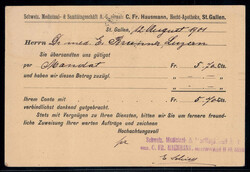 Schweiz. Medicinal- & Sanitätsgeschäft A.-G. C. Fr. Hausmann, Hecht-Apotheke, St. Gallen.
St. Gallen, August 1901
Herrn Dr med. E. Luzern
Sie übersandten uns gütigst
per Mandat Fr. 5.70 Cts
und haben wir diesen Betrag zuzügl.
Fr. Cts.
Ihrem Conto mit Fr. 5.70 Cts.
verbindlichst dankend gutgebracht.
Stets mit Vergnügen zu Ihren Diensten, bitten wir Sie um fernere freund-
liche Zuweisung Ihrer werten Aufträge und zeichnen
Hochachtungsvoll
Schweiz. Medicinal-